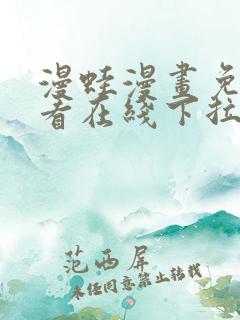 漫蛙漫畫免
看在綫下拉
范西屏
未经同意禁止转载